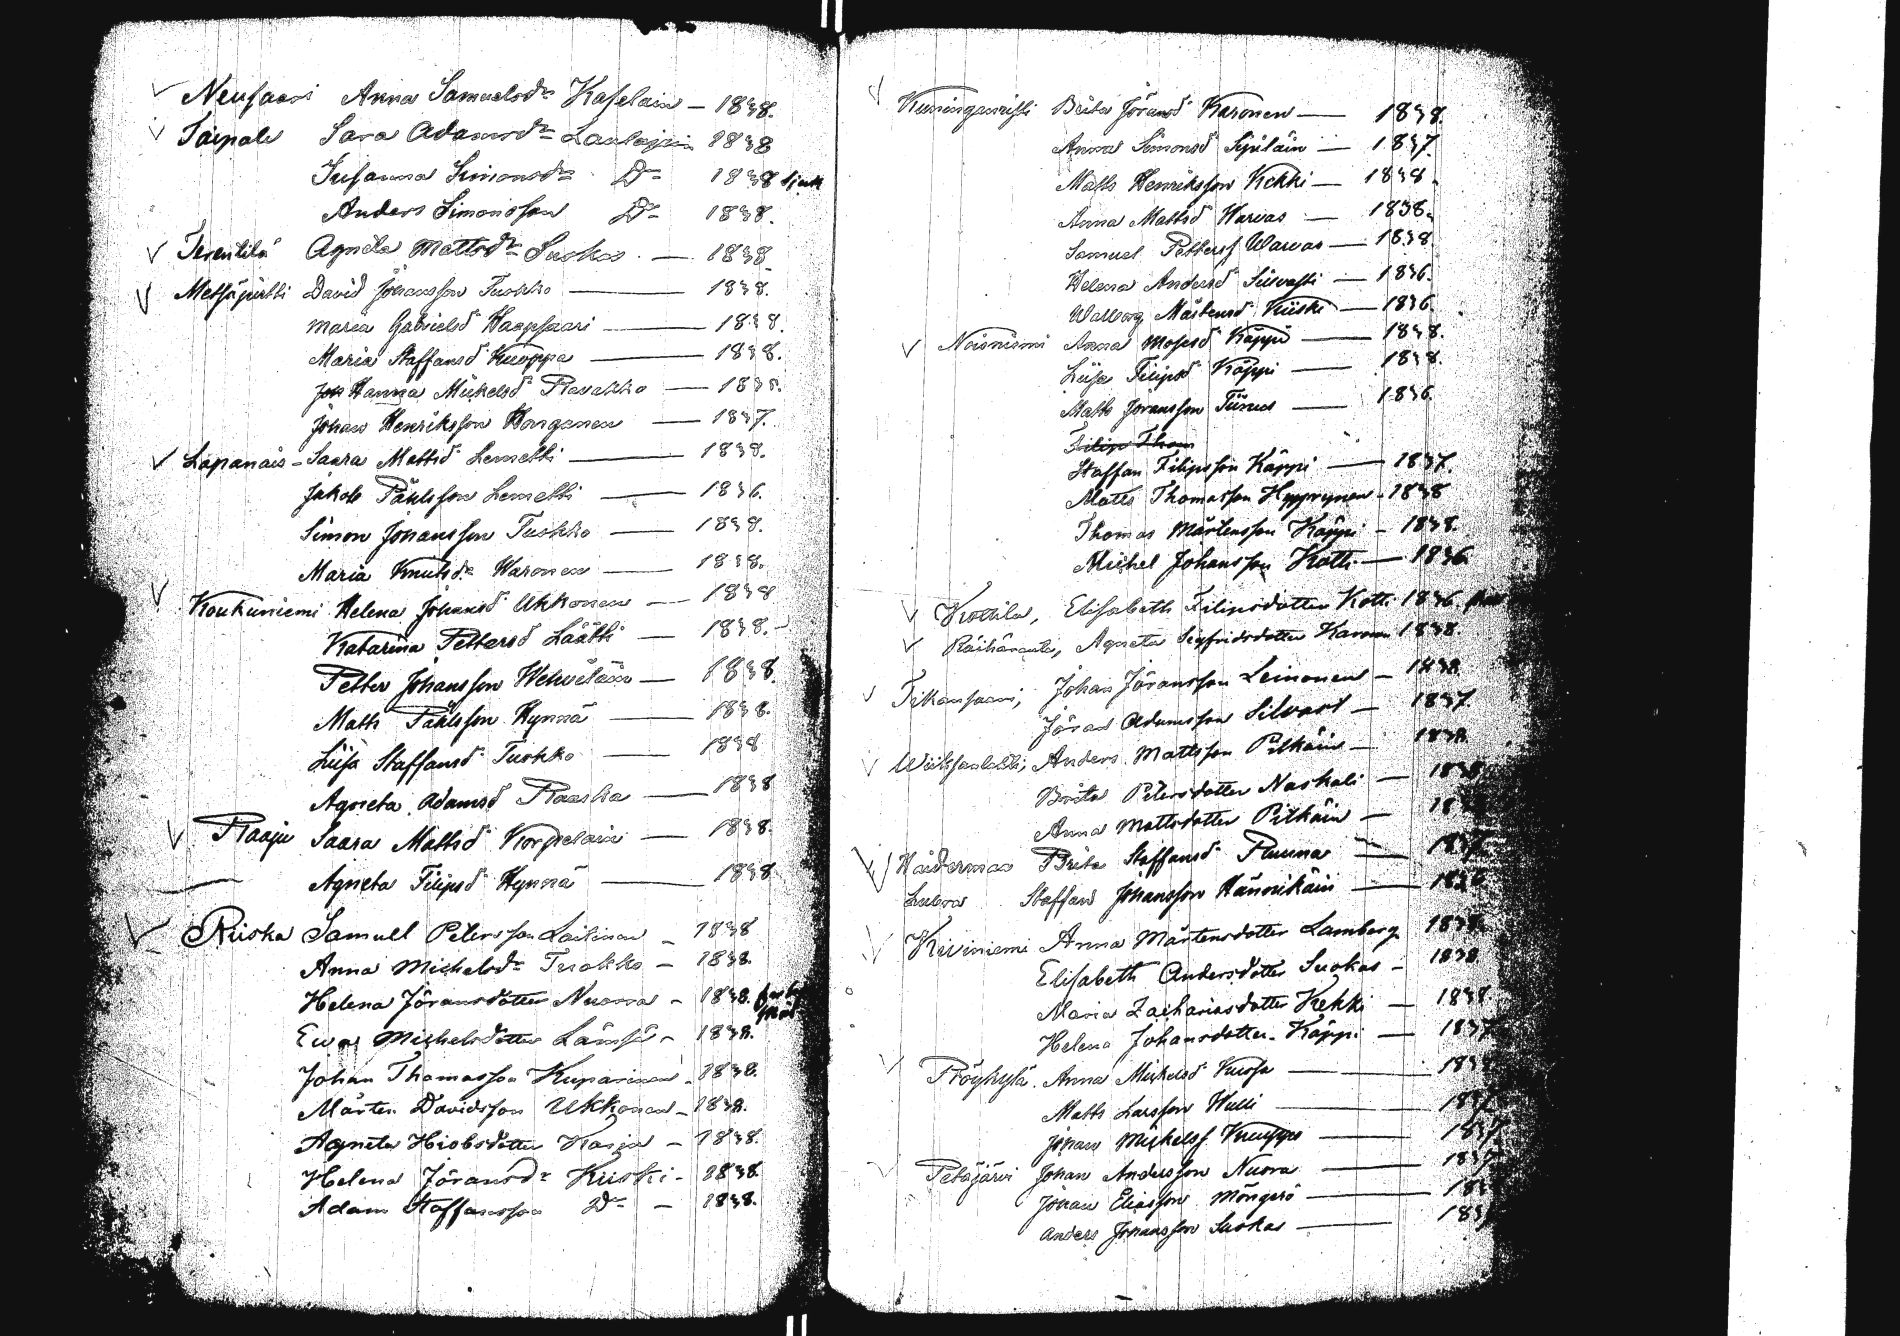 Neusaari Anna Samuelsdr Kaselain – 1838.
Taipale Sara Adamsdr 1838
Susanna Simonsdr Do 1838 sjuk
Anders Simonsson Do 1838.
Terentilä Agneta Mattsdr Suokas – 1838
Metsäpirtti David Johansson Tuokko — 1838.
Maria Gabrielsd Haapsaari — 1838.
Maria Staffansd Kuoppa — 1838.
Hanna Mickelsd Rasakko — 1838.
Johan Henriksson Honganen — 1837.
Lapanais – Saara Mattsd Lemetti — 1838.
Jakob Påhlsson Lemetti — 1836.
Simon Johansson Tuokko — 1838.
Maria Knutsdr Waronen — 1838.
Koukuniemi Helena Johansd Ukkonen — 1838
Katarina Pettersd Läätti — 1838.
Petter Johansson Wehviläin — 1838.
Matts Påhlsson Hynnä — 1838.
Liisa Staffansd Tuokko — 1838
Agneta Adamsd Raaska — 1838
Raaju Saara Mattsd Korpelain — 1838.
Agneta Filipsd Hynnä — 1838
Riiska Samuel Petersson Laitinen – 1838
Anna Michelsdr Tuokko – 1838.
Helena Jöransdotter Nuora – 1838.
Eva Michelsdotter Lämsä – 1838.
Johan Thomasson Kuparinen – 1838.
Mårten Davidsson Ukkonen – 1838.
Agneta Hiobsdotter Karja – 1838.
Helena Jöransdr Kiiski – 1838.
Adam Staffansson Do – 1838.
Kuninganristi Brita Jöransd Karonen — 1838.
Anna Simonsd Sipiläin — 1837.
Matts Henriksson Kekki — 1838.
Anna Mattsd Warvas — 1838.
Samuel Petterss Warvas — 1838
Helena Andersd Siilvasti — 1836.
Walborg Mårtensd Kiiski — 1836.
Noisniemi Anna Mosesd Käppi — 1838.
Liisa Filipsd Käppi — 1838.
Matts Jöransson Tiinus — 1836.
Filip Thom
Staffan Filipsson Käppi — 1837.
Matts Thomasson Hyyrynen – 1838
Thomas Mårtensson Käppi – 1838.
Michel Johansson Kotti — 1836
Kottila, Elisabeth Filipsdotter Kotti 1836.
Räihäranta, Agneta Sigfridsdotter Karonen 1838.
Tikansaari, Johan Jöransson Leinonen – 1838.
Jöran Adamsson Silvast – 1837.
Wiiksanlahti, Anders Mattsson Pitkäin – 1838.
Brita Petersdotter Naskali —
Anna Mattsdotter Pitkäin —
Haidermaa Brita Staffansd Ruuna — 1837
Staffan Johansson Hännikäin —
Kiviniemi Anna Mårtensdotter Lamberg 1838.
Elisabeth Andersdotter Suokas – 1838
Maria Zachariasdotter Kekki — 1838.
Helena Johansdotter Käppi — 1837
Röykylä. Anna Mickelsd Kuosa —
Matts Larsson Wulli —
Johan Mickelss Kuuppo — 1837
Petäjärvi Johan Andersson Nuora — 1837
Johan Eliasson Möngerö —
Anders Johansson Suokas —